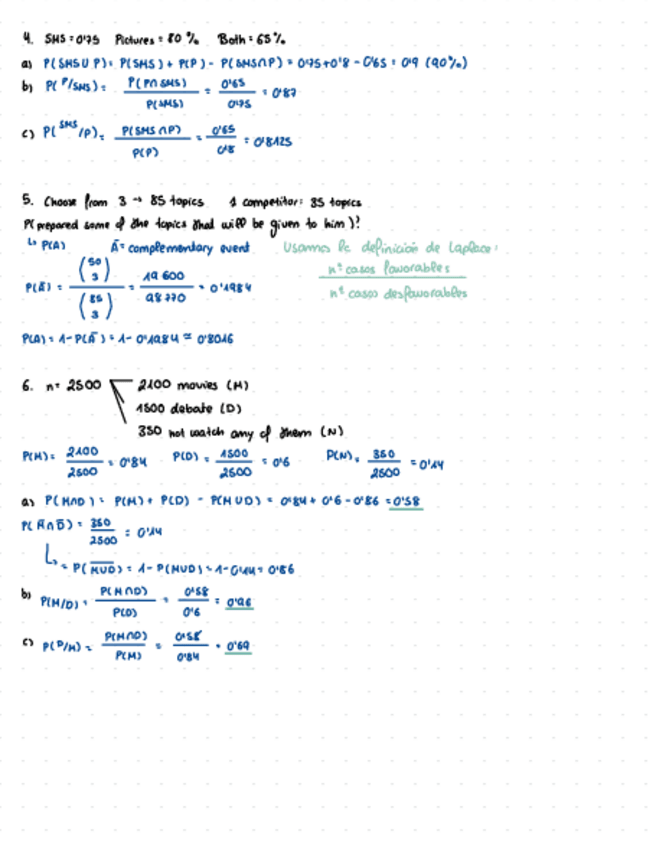 4. SMS = 0'75 Pictures = 80 % Both = 65 %
a) P(SMS ∪ P) = P(SMS) + P(P) - P(SMS∩P) = 0'75+0'8 - 0'65 = 0'9 (90%)
b) P(P/SMS) = P(P∩SMS) / P(SMS) = 0'65 / 0'75 = 0'87
c) P(SMS/P) = P(SMS∩P) / P(P) = 0'65 / 0'8 = 0'8125
5. Choose from 3 → 85 topics 1 competitor: 35 topics
P(prepared some of the topics that will be given to him)?
↳ P(A) Ā = complementary event Usamos la definición de Laplace:
nº casos favorables
nº casos desfavorables
P(Ā) = (50 3) / (85 3) = 19 600 / 98 770 = 0'1984
P(A) = 1-P(Ā) = 1- 0'1984 ≃ 0'8016
6. n = 2500 2100 movies (M)
1500 debate (D)
350 not watch any of them (N)
P(M) = 2100 / 2500 = 0'84 P(D) = 1500 / 2500 = 0'6 P(N) = 350 / 2500 = 0'14
a) P(M∩D) = P(M) + P(D) - P(M∪D) = 0'84 + 0'6 - 0'86 = 0'58
P(M̄∩D̄) = 350 / 2500 = 0'14
↳ = P(M̅∪̅D̅) = 1 - P(M∪D) = 1-0'14 = 0'86
b) P(M/D) = P(M∩D) / P(D) = 0'58 / 0'6 = 0'96
c) P(D/M) = P(M∩D) / P(M) = 0'58 / 0'84 = 0'69